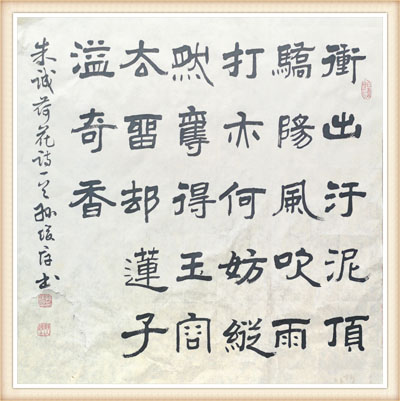 衝出汙泥頂
驕陽風吹雨
打亦何妨縱
然奪得玉容
去畱却蓮子
溢奇香
朱誠荷花詩一首孫書